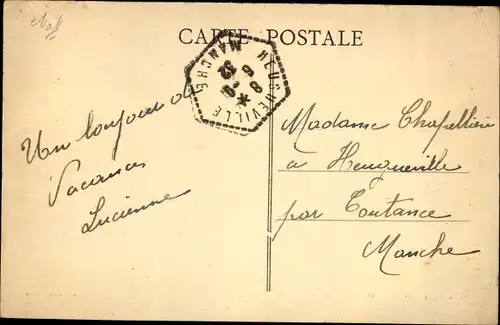 CARTE POSTALE
HEUGUEVILLE
MANCHE
8
6
32
Un bonjour de
Vacances
Lucienne
Madame Chapellière
à Heugueville
par Coutance
Manche